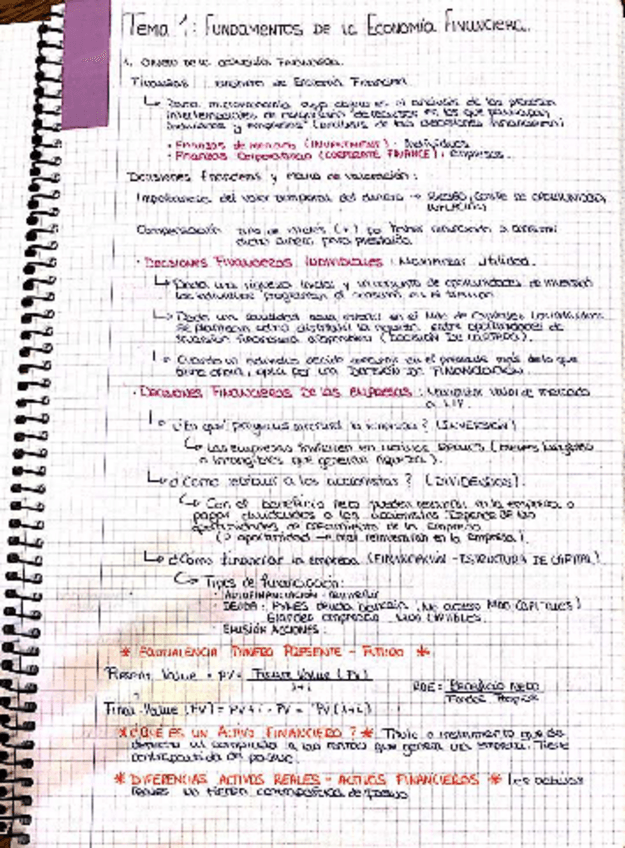 TEMA 1: FUNDAMENTOS DE LA ECONOMÍA FINANCIERA.
1. ORIGEN DE LA ECONOMÍA FINANCIERA.
Finanzas: de Economía Financiera
Rama microeconomía cuyo objeto es el análisis de los procesos
intertemporales de de recursos en los que participan
individuos y empresas (análisis de las decisiones financieras)
· Finanzas de mercado (INVESTMENT): Individuos
· Finanzas Corporativas (CORPORATE FINANCE): empresas.
Decisiones financieras y de valoración:
Importancia del valor temporal del dinero → RIESGO, COSTE DE OPORTUNIDAD,
INFLACIÓN
Compensación tipo de interés (+) por haber renunciado a consumir
dicho dinero para prestarlo.
· DECISIONES FINANCIERAS INDIVIDUALES: Maximizar utilidad.
Dada una riqueza inicial y un conjunto de oportunidades de inversión
los individuos el consumo en el tiempo
Dada una cantidad para invertir en el Mdo de Capitales
se plantean cómo distribuir la riqueza entre oportunidades de
inversión financiera (DECISIÓN DE CARTERA).
Cuando un individuo decide consumir en el presente más de lo que
tiene ahora, opta por una DECISIÓN DE FINANCIACIÓN.
· DECISIONES FINANCIERAS DE LAS EMPRESAS: Maximizar valor de mercado
a L.P.
¿En qué invertirá la empresa? (INVERSIÓN)
Las empresas invierten en activos REALES (bienes tangibles
o intangibles que generan riqueza).
¿Cómo retribuir a los accionistas? (DIVIDENDOS).
Con el beneficio neto pueden en la empresa o
pagar dividendos a los accionistas. Depende de las
oportunidades de crecimiento de la empresa
(> oportunidad → reinvertirán en la empresa).
¿Cómo financiar la empresa (FINANCIACIÓN - ESTRUCTURA DE CAPITAL)
Tipos de financiación:
· AUTOFINANCIACIÓN:
· DEUDA: PYMES deuda bancaria (No acceso Mdo CAPITALES)
Grandes empresas Mdo CAPITALES.
· EMISIÓN ACCIONES.
* EQUIVALENCIA DINERO PRESENTE - FUTURO *
Present Value = PV = Future Value (FV)
1+i
ROE = Beneficio Neto
Fondos Propios
Value (FV) = PV·i + PV = PV(1+i)
* ¿QUÉ ES UN ACTIVO FINANCIERO? * Título o instrumento que da
derecho al comprador a las rentas que genera una empresa. Tiene
contrapartida en pasivo.
* DIFERENCIAS ACTIVOS REALES - ACTIVOS FINANCIEROS * Los activos
reales no tienen contrapartida de pasivo